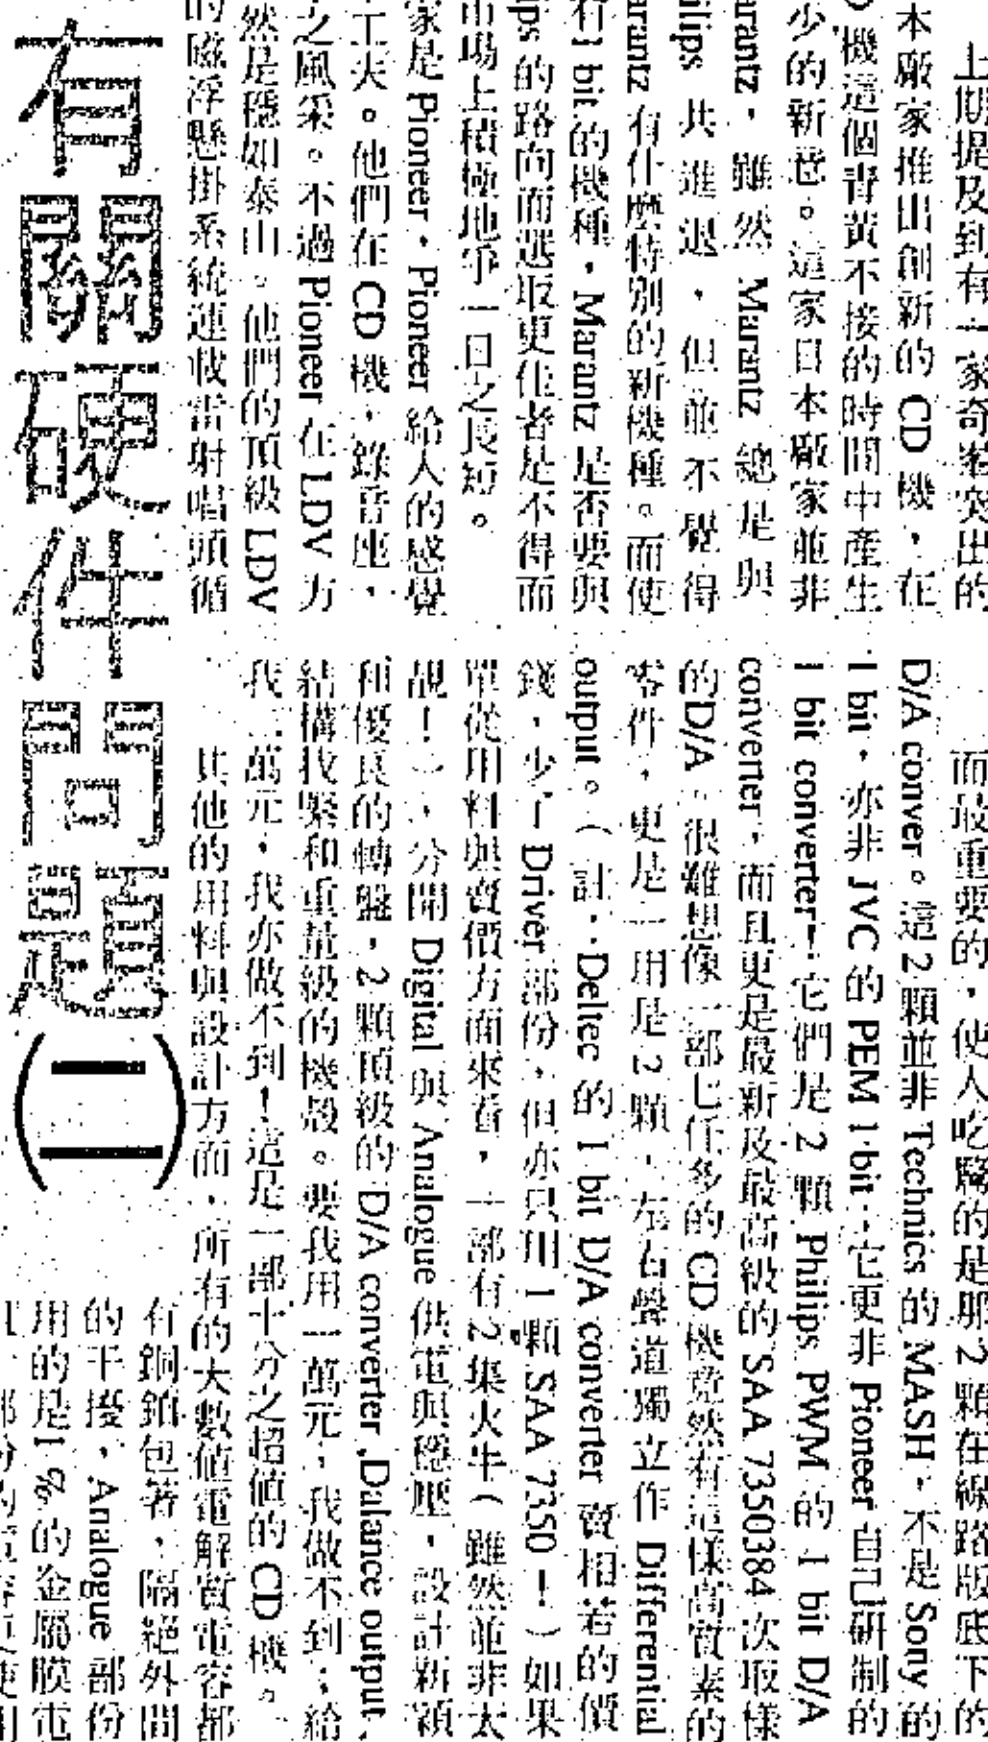 上期提及到有一家奇峯突出的
本廠家推出創新的 CD 機，在
機這個青黃不接的時間中產生
少的新意。這家日本廠家並非
arantz，雖然 Marantz 總是與
ilips 共進退，但並不覺得
arantz 有什麼特別的新機種。而使
有 1 bit 的機種，Marantz 是否要與
ips 的路向而選取更佳者是不得而
市場上積極地爭一日之長短。
家是 Pioneer，Pioneer 給人的感覺
工夫。他們在 CD 機，錄音座，
之風采。不過 Pioneer 在 LDV 方
然是穩如泰山。他們的頂級 LDV
的磁浮懸掛系統連載雷射唱頭循
而最重要的，使人吃驚的是那 2 顆在線路版底下的
D/A conver。這 2 顆並非 Technics 的 MASH，不是 Sony 的
1 bit，亦非 JVC 的 PEM 1-bit，它更非 Pioneer 自己研制的
1 bit converter！它們是 2 顆 Philips PWM 的 1 bit D/A
converter，而且更是最新及最高級的 SAA 7350384 次取樣
的 D/A。很難想像一部七仟多的 CD 機竟然有這樣高質素的
零件，更是一用是 2 顆，左右聲道獨立作 Differential
output。（註：Deltec 的 1 bit D/A converter 賣相若的價
錢，少了 Driver 部份，但亦只用 1 顆 SAA 7350！）如果
單從用料與賣價方面來看，一部有 2 隻火牛（雖然並非太
靚！），分開 Digital 與 Analogue 供電與穩壓，設計新穎
和優良的轉盤，2 顆頂級的 D/A converter，Dalance output，
結構扙緊和重量級的機殼。要我用一萬元，我做不到；給
我二萬元，我亦做不到！這是一部十分之超值的 CD 機。
其他的用料與設計方面，所有的大數值電解質電容都
有銅鉑包著，隔絕外間
的干擾，Analogue 部份
用的是 1 % 的金屬膜電
有關硬件問題(二)